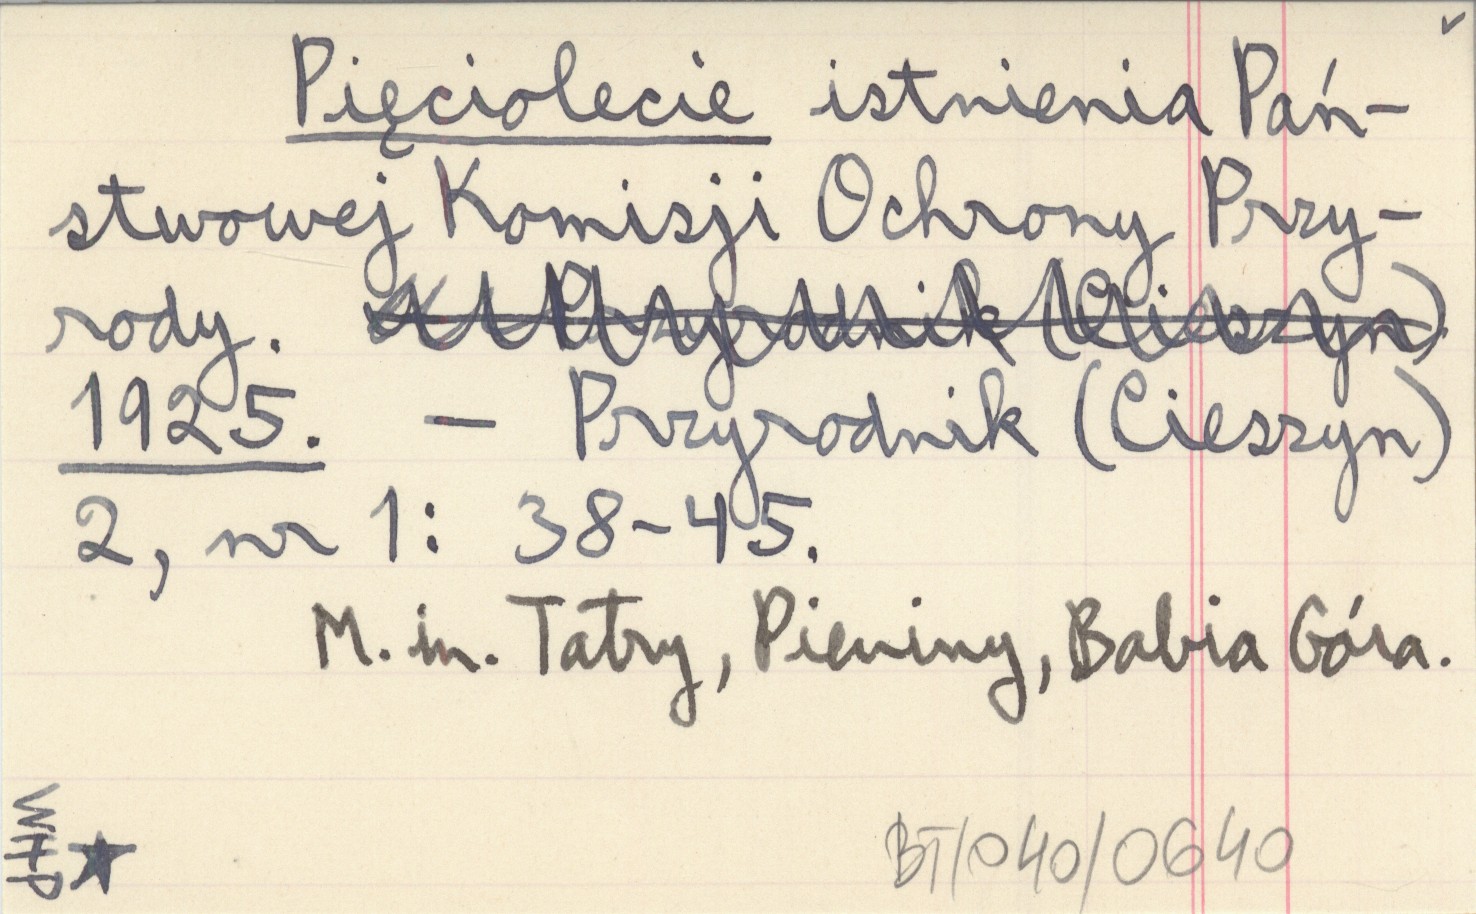 Pięciolecie istnienia Pań-
stwowej Komisji Ochrony Przy-
rody. Przyrodnik (Cieszyn)
1925. — Przyrodnik (Cieszyn)
2, nr 1: 38-45.
M. in. Tatry, Pieniny, Babia Góra.
BT/040/0640